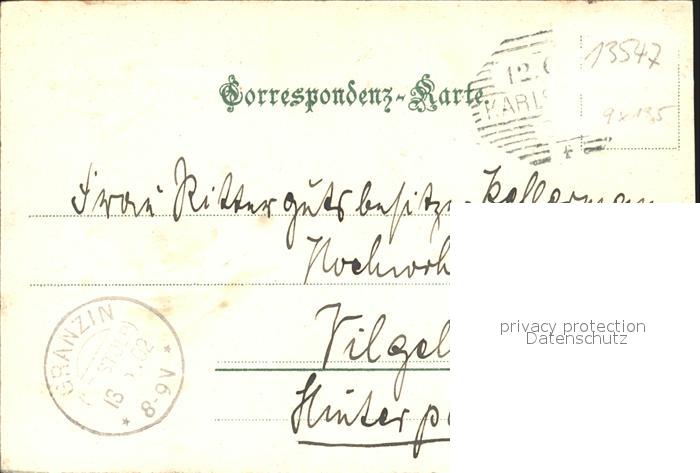 13547
12.
KARLS
4
9 x 13,5
Correspondenz-Karte.
Frau Rittergutsbesitzer Kellerman
Hochwoh
Vilgel
Hinterp
GRANZIN
STOLP
13 02
8-9V
privacy protection
Datenschutz